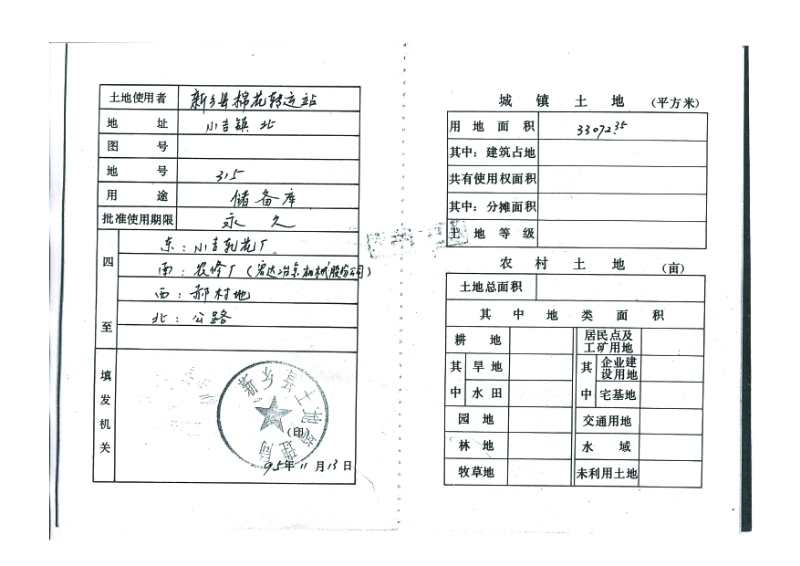 土地使用者 新乡县棉花转运站
地 址 小吉镇 北
图 号
地 号 315
用 途 储备库
批准使用期限 永 久
四至
东：小吉轧花厂
南：农修厂（宏达冶京机械股份公司）
西：郝村地
北：公路
填发机关
新乡县土地管理局
（印）
95年11月13日
城 镇 土 地 （平方米）
用 地 面 积 33072.35
其中：建筑占地
共有使用权面积
其中：分摊面积
土 地 等 级
农 村 土 地 （亩）
土地总面积
其 中 地 类 面 积
耕 地 居民点及工矿用地
其中 旱 地 其中 企业建设用地
水 田 宅基地
园 地 交通用地
林 地 水 域
牧草地 未利用土地